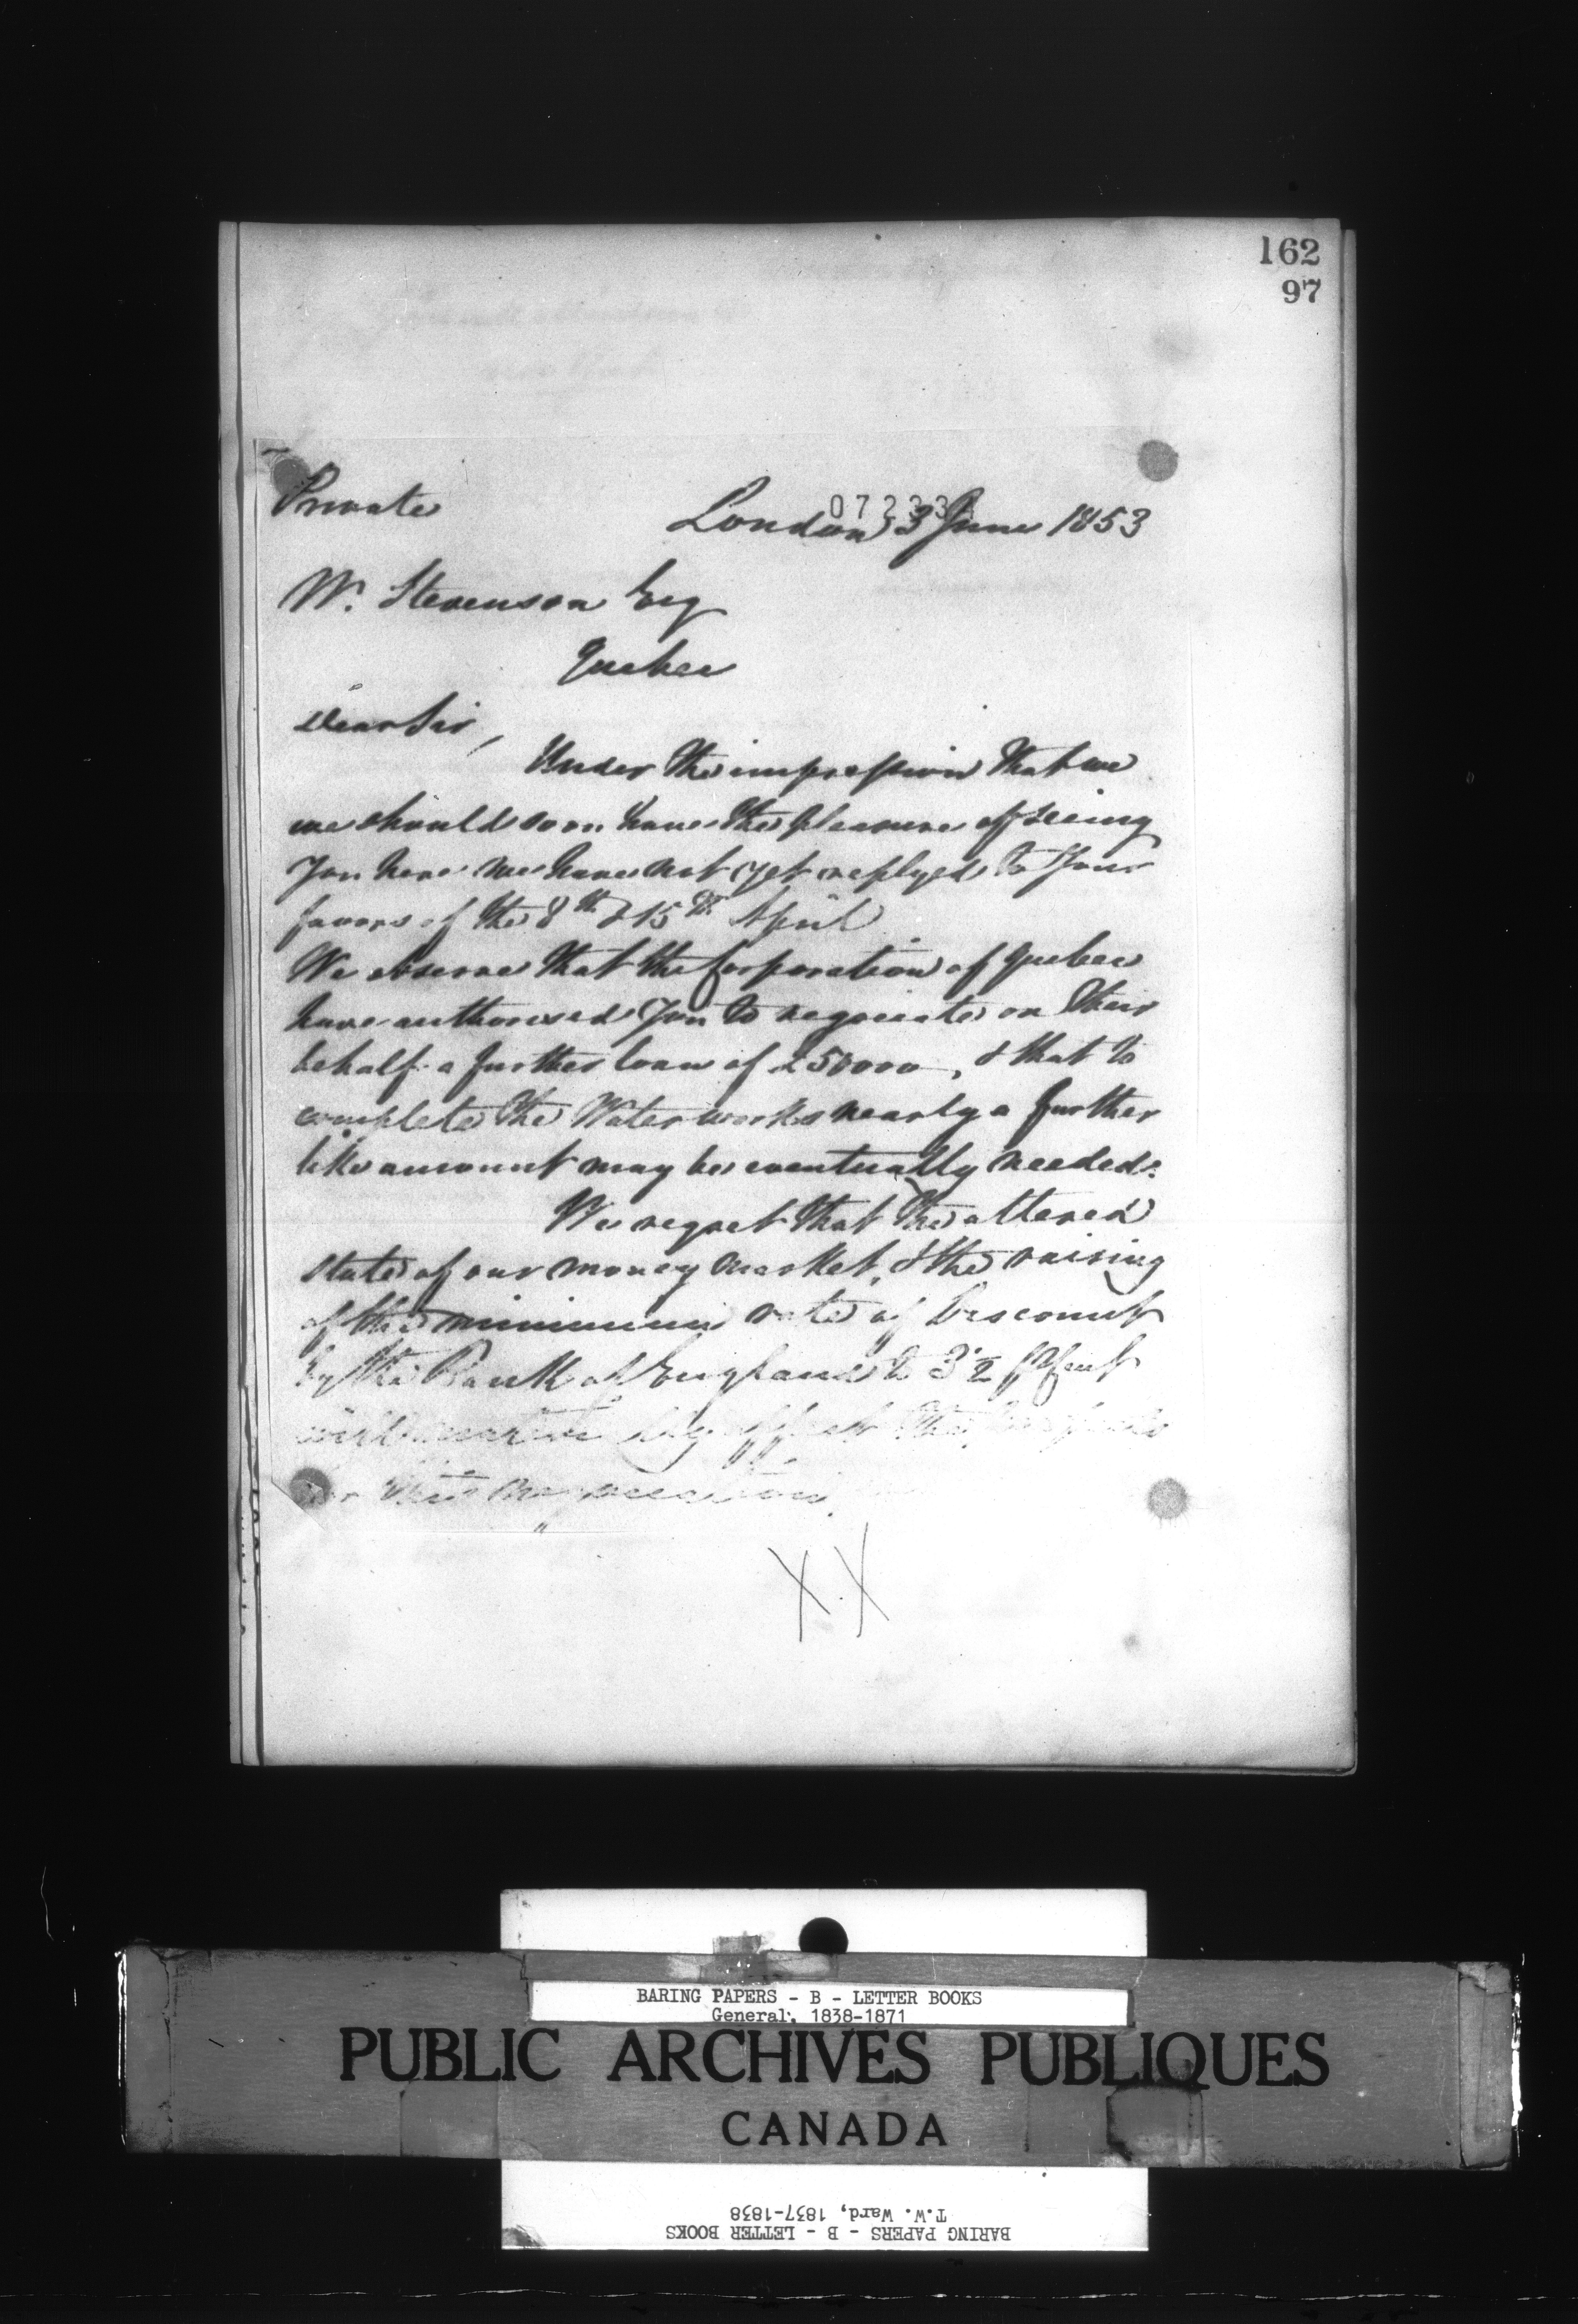 162
97
Private
07233
London 3 June 1853
W. Stevenson Esq
Quebec
Dear Sir,
Under the impression that we
we should soon have the pleasure of seeing
you here we have not yet replyed to your
favors of the 8th & 15th April
We observe that the Corporation of Quebec
have authorised you to negociate on their
behalf a further loan of £50000, & that to
complete the Water works nearly a further
like amount may be eventually needed.
We regret that the altered
state of our money market, & the raising
of the minimum rate of discount
by the Bank of England to 3 1/2 p Cent
will materially affect the prospects
for this negociation
X.X
BARING PAPERS - B - LETTER BOOKS
General, 1838-1871
PUBLIC ARCHIVES PUBLIQUES
CANADA
T.W. Ward, 1837-1838
BARING PAPERS - B - LETTER BOOKS